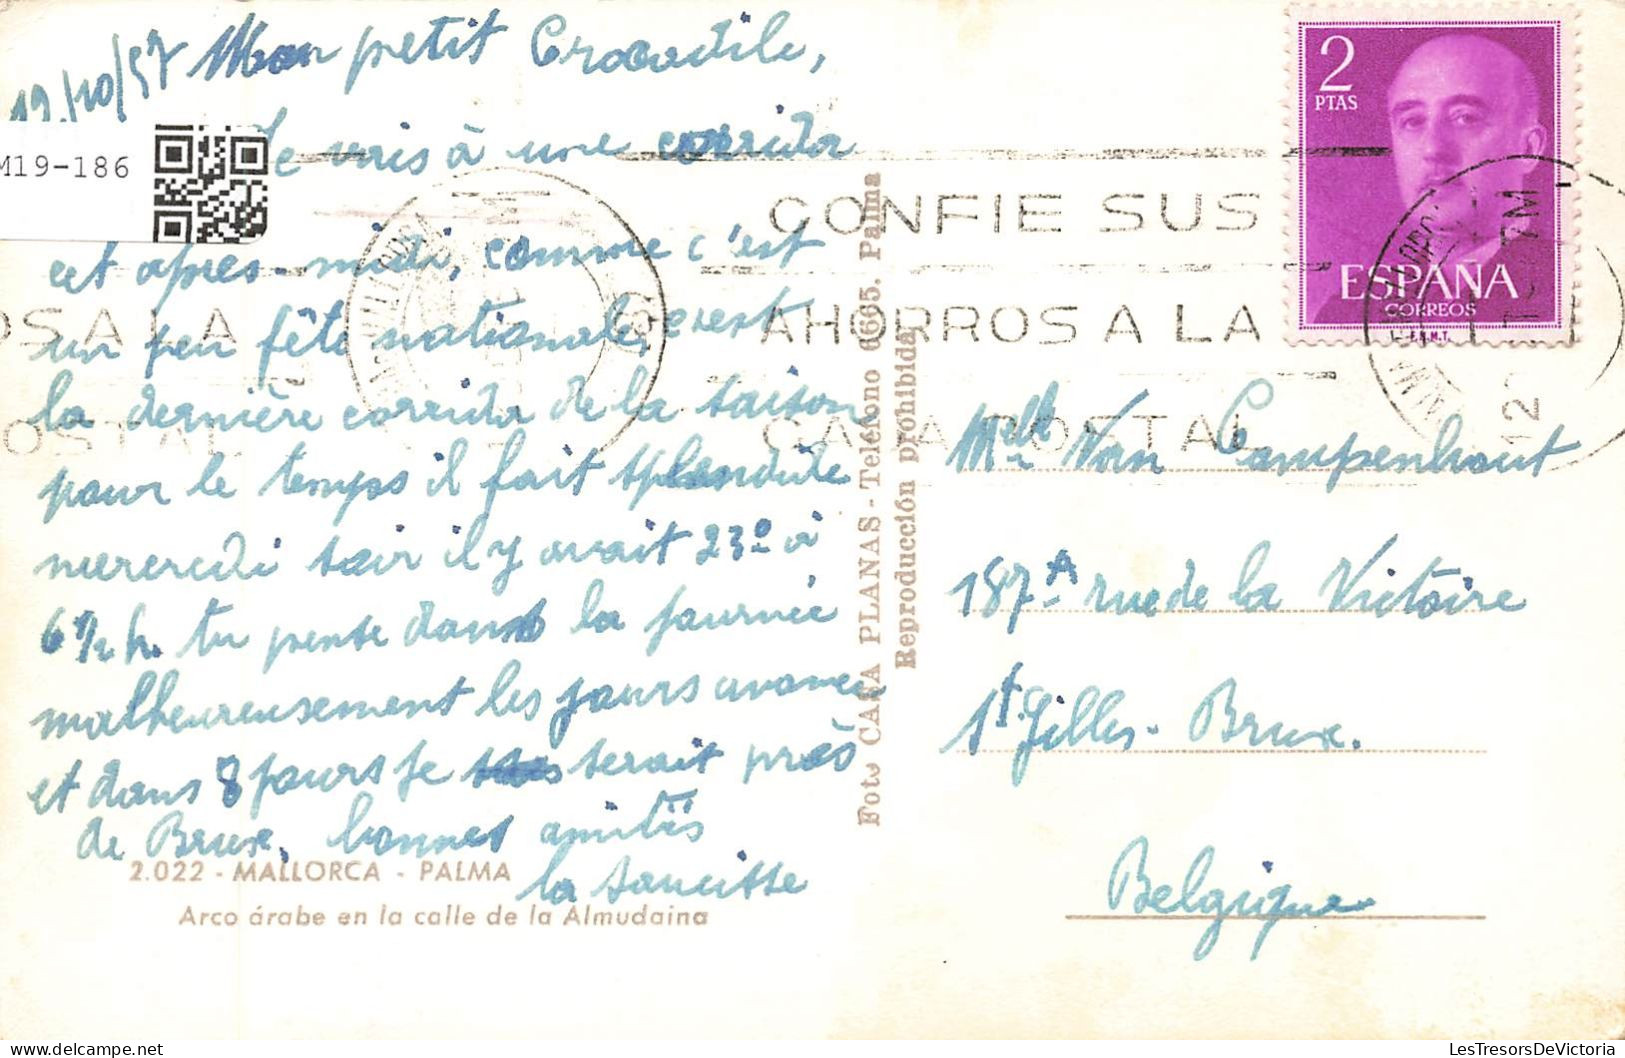 12/10/57 Mon petit Crocodile,
Je vais à une corrida
cet après-midi, comme c'est
un peu fête nationale, c'est
la dernière corrida de la saison
pour le temps il fait splendide
mercredi soir il y avait 23º à
6 1/2 h. tu pense dans la journée
malheureusement les jours avance
et dans 8 jours je serait près
de Brux. bonnes amitiés
la saucisse
2.022 - MALLORCA - PALMA
Arco árabe en la calle de la Almudaina
M19-186
Foto CASA PLANAS - Teléfono 6665. Palma
Reproducción prohibida
CONFIE SUS
AHORROS A LA
CAJA POSTAL
OS A LA
OSTAL
2
PTAS
ESPAÑA
CORREOS
F.N.M.T.
Melle Van Campenhout
187A rue de la Victoire
St Gilles - Brux.
Belgique
LesTresorsDeVictoria